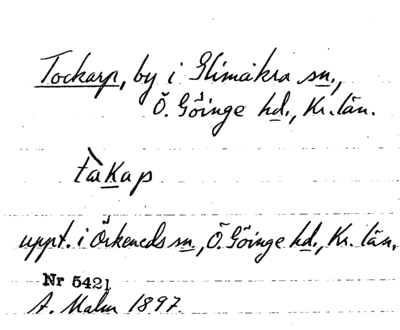 Tockarp, by i Glimåkra sn.,
Ö. Göinge hd., Kr. län.
tàKap
uppt. i Örkeneds sn, Ö. Göinge hd., Kr. län.
Nr 5421
A. Malm 1897.